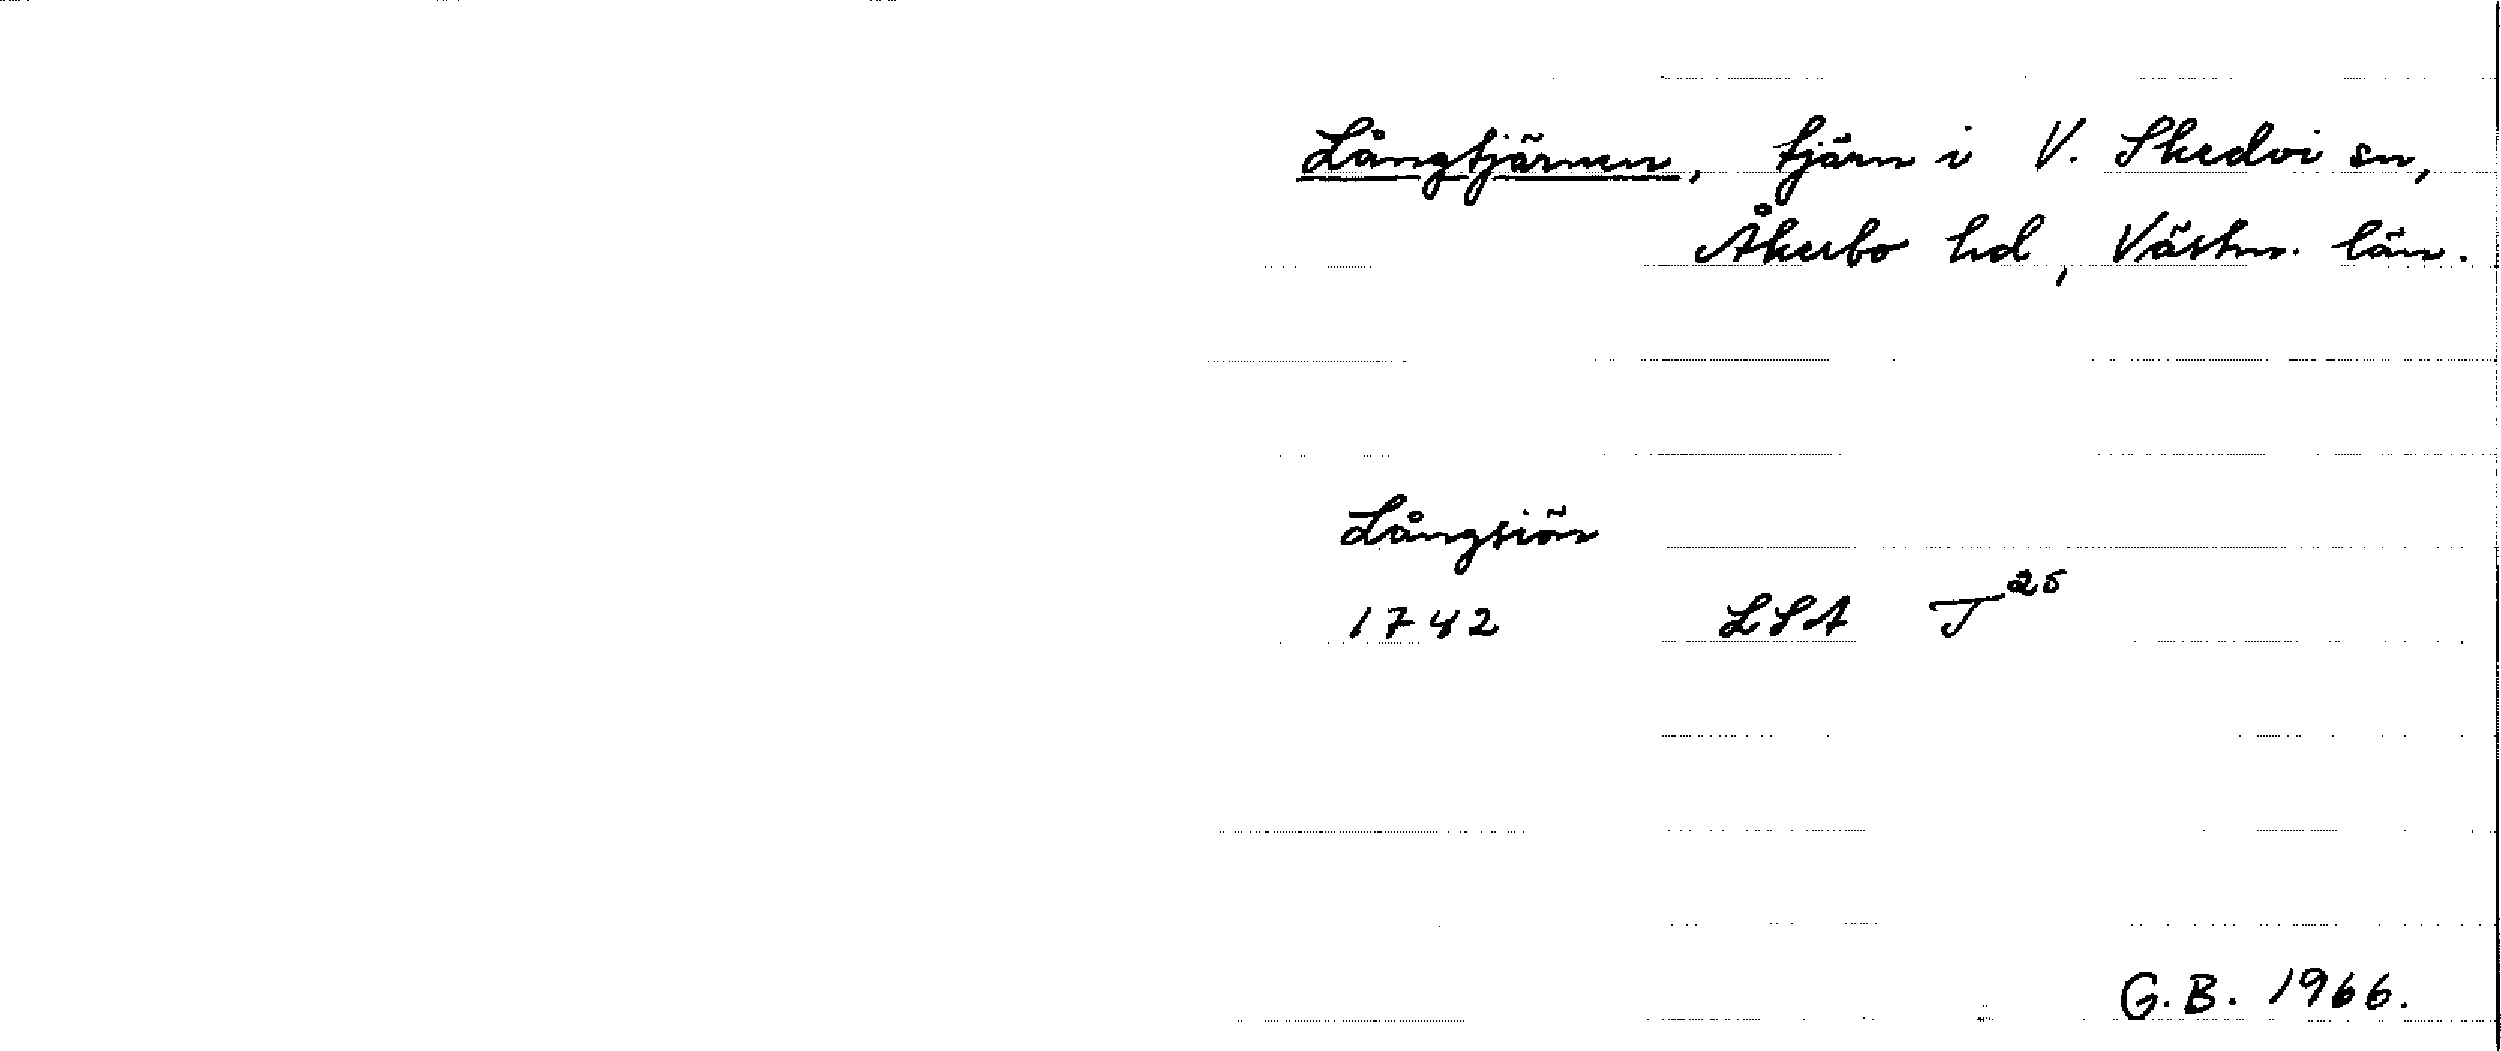 Långtjärnen, tjärn i V. Skedvi sn,
Åkerbo hd, Västm. län.
Långtiön
1742 LSA T 25
G.B. 1966.